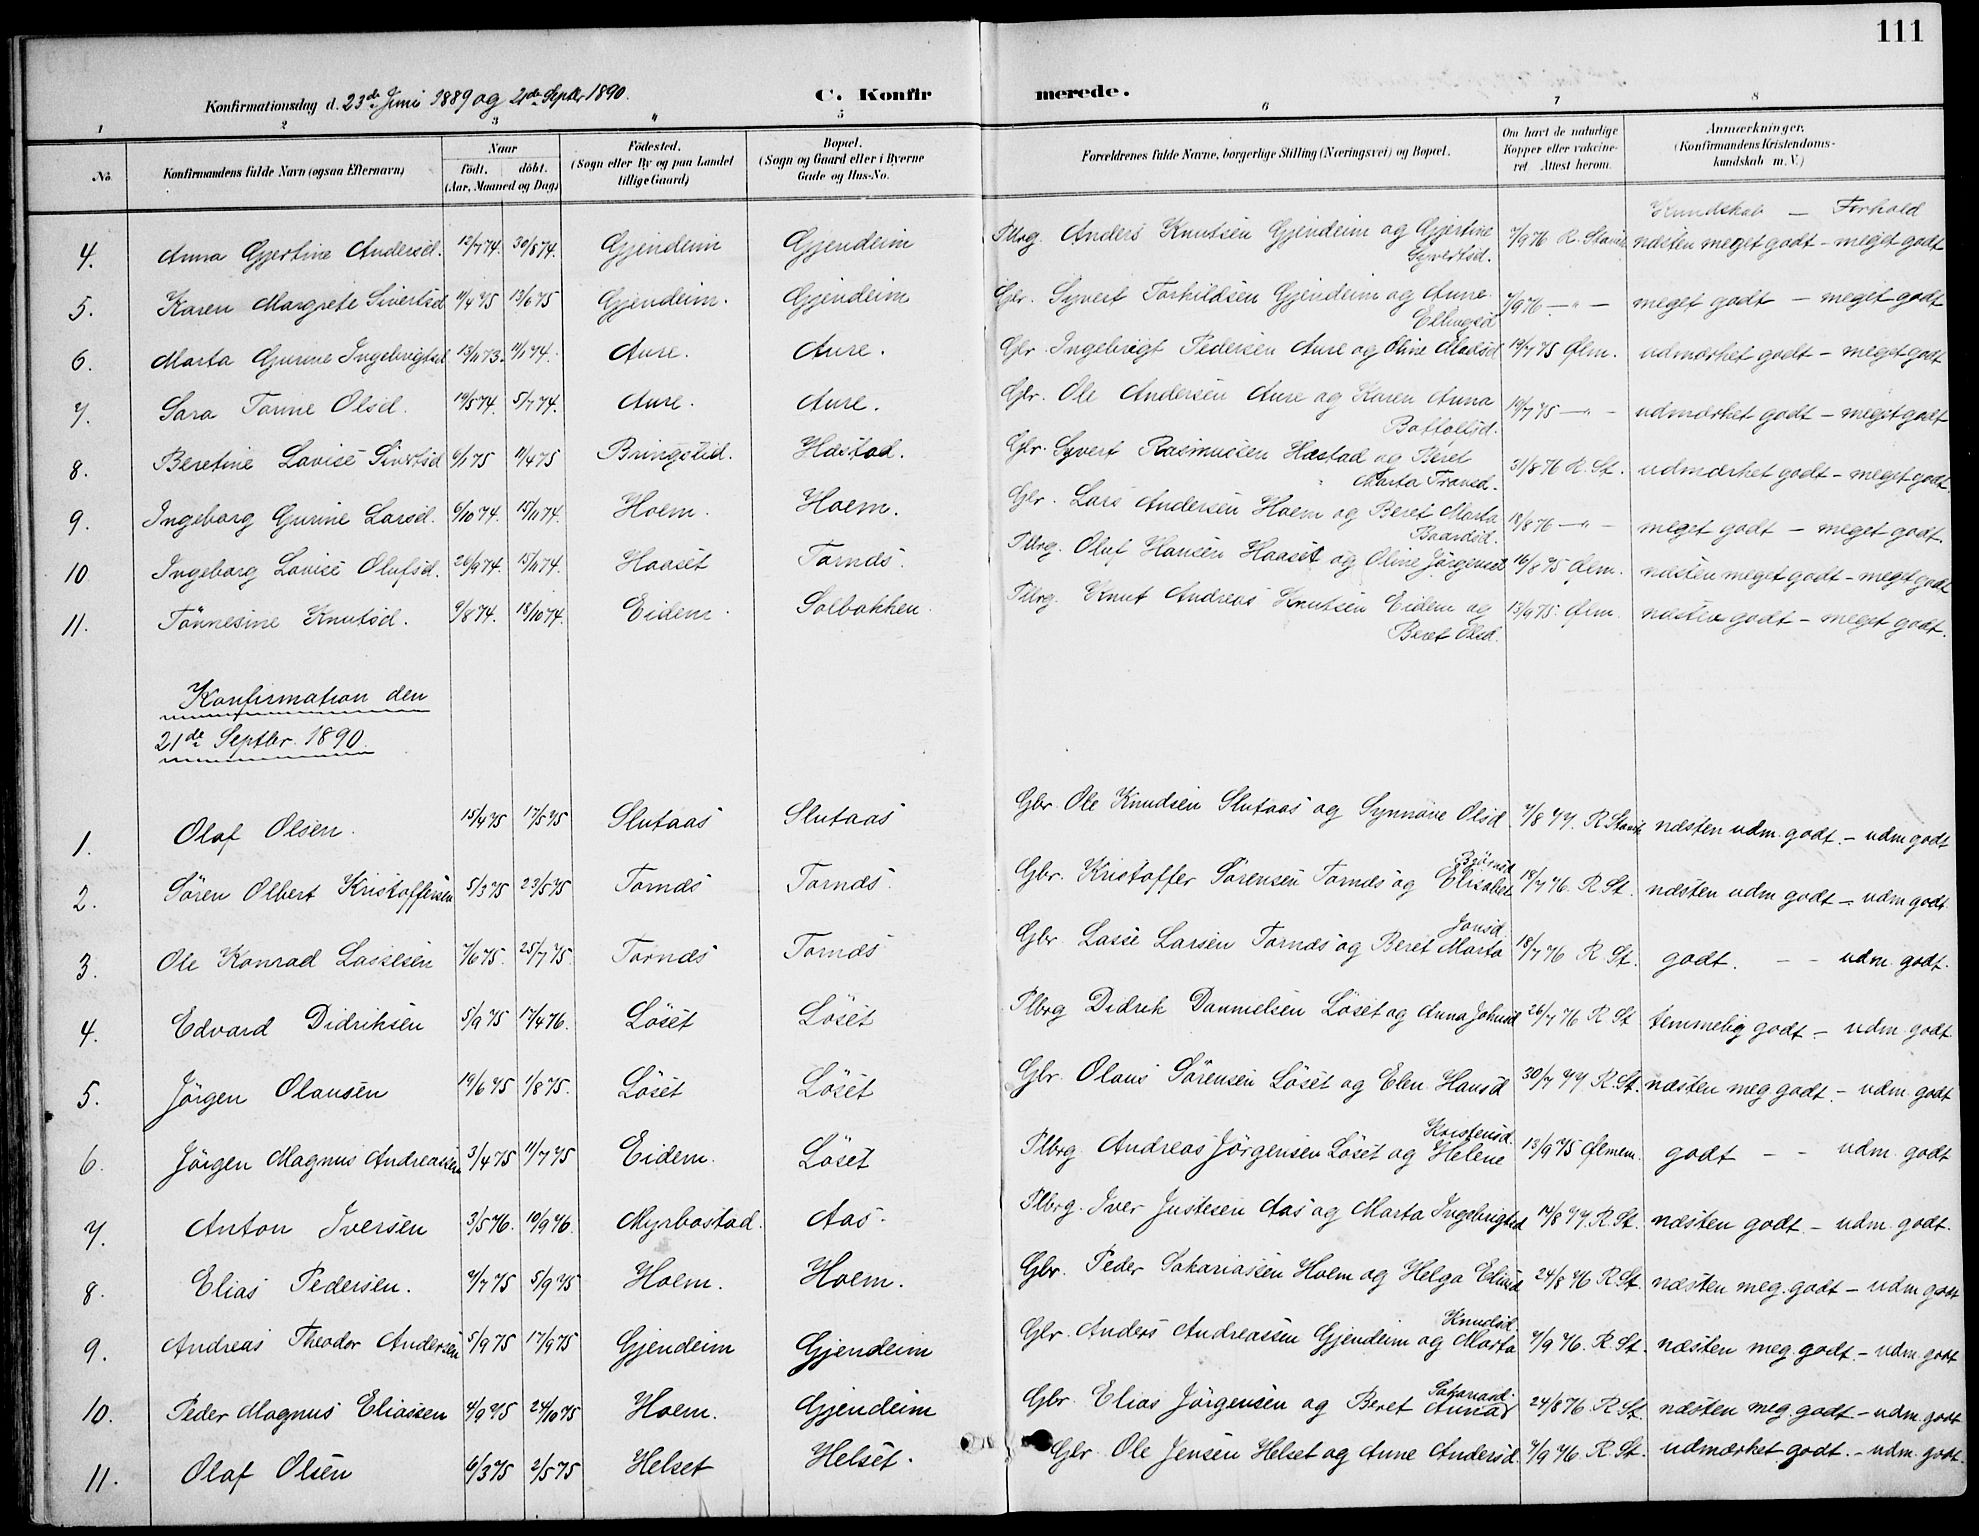 111
Konfirmationsdag d. 23de Juni 1889 og 21de Septbr 1890. C. Konfirmerede.
1 2 3 4 5 6 7 8
No. Konfirmandens fulde Navn (ogsaa Efternavn) Naar født. døbt. (Aar, Maaned og Dag) Fødested. (Sogn eller By og paa Landet tillige Gaard) Bopæl. (Sogn og Gaard eller i Byerne Gade og Hus-No. Forældrenes fulde Navne, borgerlige Stilling (Næringsvei) og Bopæl. Om havt de naturlige Kopper eller vakcineret Attest herom. Anmærkninger. (Konfirmandens Kristendomskundskab m. V.)
Kundskab — Forhold
4. Anna Gjertine Andersd. 12/7 74. 30/8 74. Gjendeim Gjendeim Plbrg. Anders Knutsen Gjendeim og Gjertine Syvertsd. 7/9 76 R. Stavik næsten meget godt - meget godt
5. Karen Margrete Sivertsd 11/4 75 13/6 75 Gjendeim. Gjendeim Gbr. Syvert Torkildsen Gjendeim og Anne Ellingsd 7/9 76 — " — meget godt — meget godt
6. Marta Gurine Ingebrigtsd 13/11 73. 11/1 74. Aure. Aure. Gbr. Ingebrigt Pedersen Aure og Oline Madsd 19/7 75 Ølm. udmærket godt - meget godt
7. Sara Tomine Olsd. 19/5 74. 5/7 74. Aure. Aure. Gbr. Ole Andersen Aure og Karen Anna Bottolfsd. 19/7 75 — " — udmærket godt - meget godt
8. Beretine Lovise Sivertsd 6/1 75 11/4 75 Bringslid. Hæstad. Gbr. Syvert Rasmussen Hæstad og Beret Marta Transd. 31/8 76 R. St. udmærket godt - meget godt.
9. Ingeborg Gurine Larsd. 6/10 74. 15/11 74. Hoem. Hoem. Gbr. Lars Andersen Hoem og Beret Marta Baardsd. 18/8 76 — " — meget godt — meget godt.
10 Ingeborg Lovise Olufsd. 26/9 74. 15/11 74. Haaset Tornæs. Plbrg. Oluf Hansen Haaset og Oline Jørgensd 16/8 75 Ølm. næsten meget godt - meget godt
11. Tønnesine Knutsd. 9/8 74. 18/10 74. Eidem. Solbakken. Plbrg. Knut Andreas Knutsen Eidem og Beret Olsd. 13/9 75. Ølm. næsten godt - meget godt.
Konfirmation den
21de Septbr. 1890.
1. Olaf Olsen. 15/4 75 17/5 75 Slutaas Slutaas Gbr. Ole Knudsen Slutaas og Synnøve Olsd 7/8 77. R Stavik næsten udm. godt. - udm godt
2. Søren Olbert Kristoffersen 5/3 75 23/5 75 Tornæs Tornæs. Gbr. Kristoffer Sørensen Tornæs og Elisabet Bjørnsd 18/7 76. R St. næsten udm godt - udm godt.
3. Ole Konrad Lassesen 7/6 75. 25/7 75. Tornæs Tornæs Gbr Lasse Larsen Tornæs og Beret Marta Jonsd. 18/7 76 R St. godt. - - udm. godt.
4. Edvard Didriksen 5/9 75 17/4 76. Løset Løset Plbrg Didrik Dannielsen Løset og Anna Johnsd 26/7 76 R St temmelig godt - udm. godt.
5. Jørgen Olausen 19/6 75 1/8 75. Løset Løset Gbr. Olaus Sørensen Løset og Elen Hansd 30/7 77. R. St. næsten meg godt. - udm. godt
6. Jørgen Magnus Andreassen 3/4 75 11/7 75 Eidem. Løset Plbrg. Andreas Jørgensen Løset og Helene Kristensd. 13/9 75 Ølmem. godt - - udm. godt
7. Anton Iversen 3/5 76. 10/9 76. Myrbostad. Aas. Plbrg. Iver Justesen Aas og Marta Ingebrigtsd 14/8 77. R. St. næsten godt - udm. godt.
8. Elias Pedersen. 7/7 75 5/9 75 Hoem. Hoem. Gbr. Peder Sakariassen Hoem og Helga Eliasd 24/8 76 R. St. næsten meg. godt - udm godt
9. Andreas Theodor Andersen 5/9 75 17/9 75 Gjendeim Gjendeim Gbr. Anders Andreassen Gjendeim og Marta Knudsd. 7/9 76. R. St. næsten meg. godt. - udm. godt
10. Peder Magnus Eliassen 4/9 75 24/10 75 Hoem. Gjendeim Gbr. Elias Jørgensen og Beret Anna Sakariasd. 24/8 76 R. St. næsten meg. godt - udm. godt
11. Olaf Olsen 6/3 75 2/5 75 Helset Helset. Gbr. Ole Jensen Helset og Anne Andersd. 7/9 76 R. St. udmærket godt. - udm. godt.